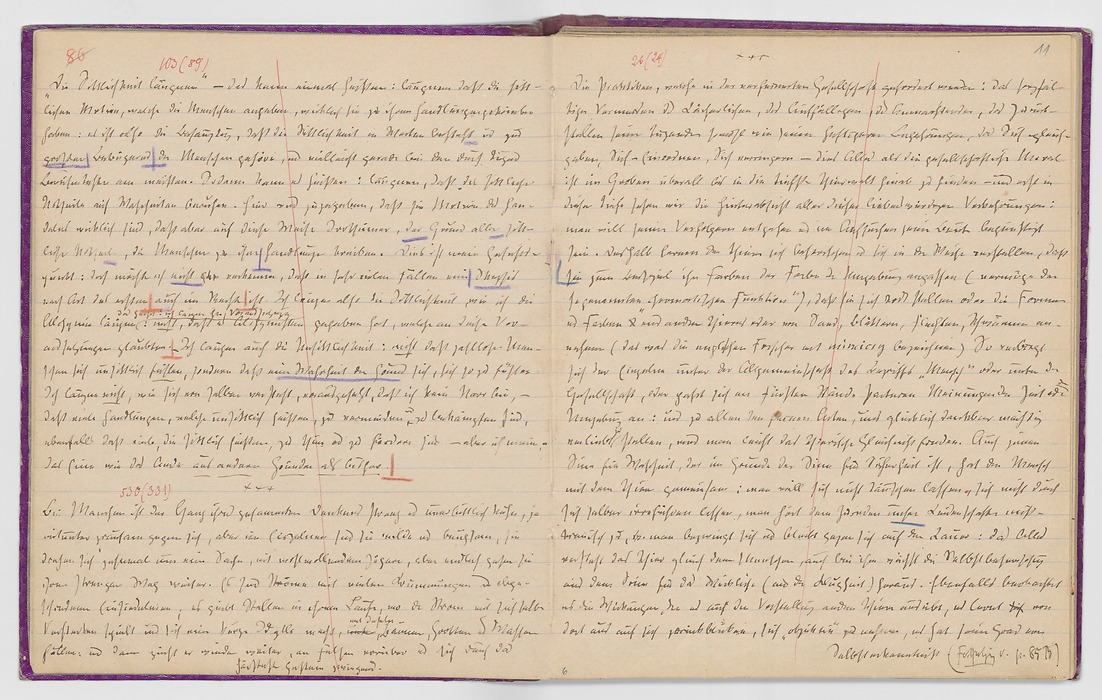 86
103 (89)
"Die Sittlichkeit läugnen" — das kann einmal heißen: läugnen daß die sitt-
lichen Motive, welche die Menschen angeben, wirklich sie zu ihren Handlungen getrieben
haben: es ist also die Behauptung, daß die Sittlichkeit in Worten besteht und zur
groben Betrügerei der Menschen gehöre, und vielleicht gerade bei den durch Tugend
Berühmtesten am meisten. Sodann kann es heißen: läugnen, daß die sittlichen
Urtheile auf Wahrheiten beruhen. Hier wird zugegeben, daß sie Motive des Han-
delns wirklich sind, daß aber auf diese Weise Irrthümer, als Grund alles sitt-
lichen Urtheils, die Menschen zu ihren Handlungen treiben. Dies ist mein Gesichts-
punkt: doch möchte ich nicht verkennen, daß in sehr vielen Fällen ein
nach Art des ersten auch im Rechte ist. Ich läugne also die Sittlichkeit wie ich die
Alchymie läugne: nicht, daß es Alchymisten gegeben hat, welche an diese Vor-
aussetzungen glaubten. Ich läugne auch die Unsittlichkeit: nicht daß zahllose Men-
schen sich unsittlich fühlen, sondern daß es in Wahrheit einen Grund giebt, sich so zu fühlen
Ich läugne nicht, wie sich von selber versteht, vorausgesetzt, daß ich kein Narr bin, —
daß viele Handlungen, welche unsittlich heißen, zu vermeiden und zu bekämpfen sind,
ebenfalls daß viele, die sittlich heißen, zu thun und zu fördern sind — aber ich meine:
das Eine wie das Andre aus anderen Gründen als bisher.
530 (331)
Bei Manchen ist das Ganze ihres Denkens streng und unerbittlich kühn, ja
mitunter grausam gegen sich, aber im Einzelnen sind sie milde und beugsam, sie
drehen sich zehnmal um eine Sache, mit wohlwollendem Zögern, aber endlich gehen sie
ihren strengen Weg weiter. Es sind Ströme mit vielen Krümmungen und abge-
schiedenen Einsiedeleien, es giebt Stellen in ihrem Laufe, wo der Strom mit sich selber
Verstecken spielt und sich eine kurze Idylle macht, mit Inseln, Bäumen, Grotten und Wasser-
fällen: und dann zieht er wieder weiter, an Felsen vorüber und sich durch das
härteste Gestein zwingend.
11
26 (24)
Die Praktiken, welche in der verfeinerten Gesellschaft gefordert werden: das sorgfäl-
tige Vermeiden des Lächerlichen, des Auffälligen, des Anmaaßenden, das Zurück-
stellen seiner Tugenden sowohl wie seiner heftigeren Begehrungen, das Sich-gleich-
geben, Sich-einordnen, Sich-verringern — dies Alles als die gesellschaftliche Moral
ist im Groben überall bis in die tiefste Thierwelt hinab zu finden — und erst in
dieser Tiefe sehen wir die Hinterabsicht aller dieser liebenswürdigen Vorkehrungen:
man will seinen Verfolgern entgehen und im Aufsuchen seiner Beute begünstigt
sein. Deshalb lernen die Thiere sich beherrschen und sich in der Weise verstellen, daß
sie zum Beispiel ihre Farben der Farbe der Umgebung anpassen (vermöge der
sogenannten „chromatischen Funktion“), daß sie sich todt stellen oder die Formen
und Farben eines anderen Thieres oder von Sand, Blättern, Flechten, Schwämmen an-
nehmen (das was die englischen Forscher mit mimicry bezeichnen) So verbirgt
sich der Einzelne unter der Allgemeinheit des Begriffs „Mensch“ oder unter der
Gesellschaft, oder paßt sich an Fürsten, Stände, Parteien, Meinungen der Zeit oder
Umgebung an: und zu allen den feinen Arten, uns glücklich dankbar mächtig
verliebt zu stellen, wird man leicht das thierische Gleichniß finden. Auch jenen
Sinn für Wahrheit, der im Grunde der Sinn für Sicherheit ist, hat der Mensch
mit dem Thiere gemeinsam: man will sich nicht täuschen lassen, sich nicht durch
sich selber irreführen lassen, man hört dem Zureden der eignen Leidenschaften miß-
trauisch zu, man bezwingt sich und bleibt gegen sich auf der Lauer: dies Alles
versteht das Thier gleich dem Menschen, auch bei ihm wächst die Selbstbeherrschung
aus dem Sinn für das Wirkliche (aus der Klugheit) heraus. Ebenfalls beobachtet
es die Wirkungen, die es auf die Vorstellung andrer Thiere ausübt, es lernt von
dort aus auf sich zurückblicken, sich „objektiv“ zu nehmen, es hat seinen Grad von
Selbsterkenntniß (Fortsetzung v. p. 85)
6